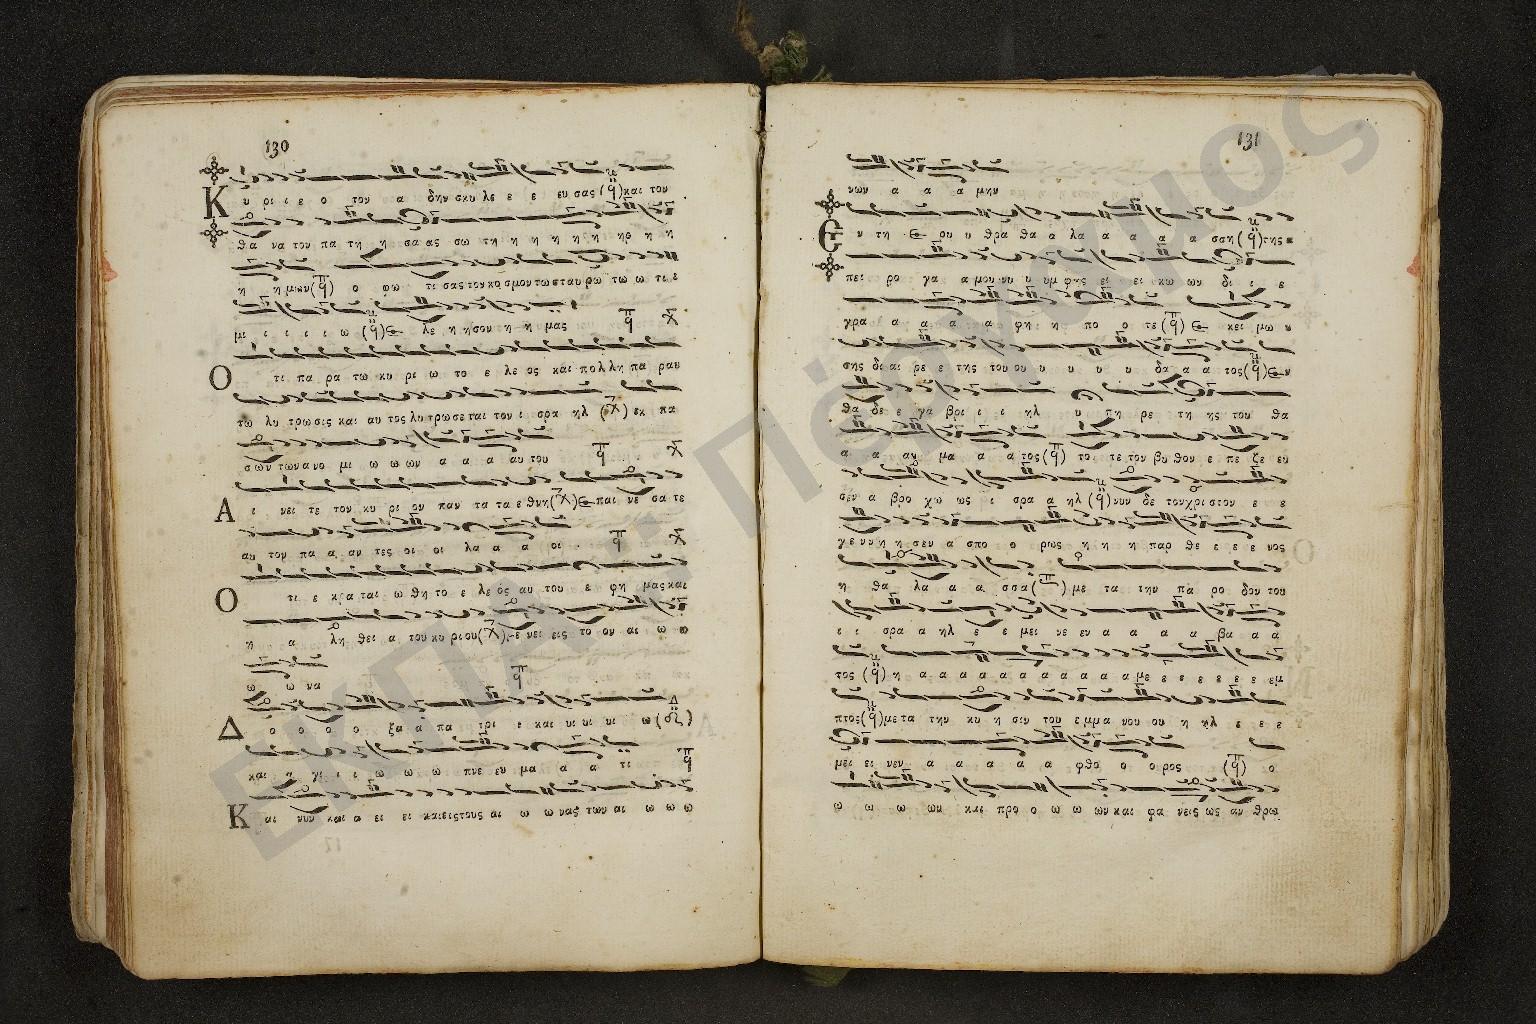 130
Κ υ ρι ι ε ο τον α δην σκυ λε ε ε ευ σας (q) και τον
θα να τον πα τη η σα ας σω τη η η η η η ηρ η η
η η μων (q) ο φω τι σας τον κο σμον τω σταυ ρω τω ω τι ε
μι ι ι ι ι ω (q) ε λε η η σον η η μας q
Ο τι πα ρα τω κυ ρι ω το ε λε ος και πολ λη πα ραυ
τω λυ τρωσις και αυ τος λυ τρωσεται τον ι σρα ηλ εκ πα
σων των ανο μι ω ω ων α α α αυ του q
Α ι νει τε τον κυ ρι ον παν τα τα ε θνη ε παι νε σα τε
αυ τον πα α αν τες οι οι λα α α οι q
Ο τι ε κρα ται ω θη το ε λε ος αυ του ε φη μας και
η α λη θει α του κυ ριου ε νει εις το ον αι ω ω
ω ω να q
Δ ο ο ο ο ξα α πα τρι ι και υι υι υι ω
και α γι ι ι ω ω ω πνε ευ μα α α α τι q
Κ αι νυν και α ει ει και εις τους αι ω ω νας των αι ω ω ω
131
νων α α α μην
Ε ν τη Ε ρυ υ θρα θα α λα α α α α σση (q) της α
πει ρο γα α μου νυ υ υμ φης ει ει κω ων δι ι ε
γρα α α α α φη η πο ο τε (q) Ε κει μω υ
σης δι αι ρε ε της του ου υ υ υ υ δα α α τος (q) Ε ν
θα δε ε γα βρι ι ι ηλ υ πη ρε τη ης του θα
α α αυ μα α α τος (q) το τε τον βυ θον ε πε ζε ευ
σεν α βρο χω ως ι σρα α ηλ (q) νυν δε τον χρι στον ε ε
γε ννη η η σεν α σπο ο ρως η η η παρ θε ε ε ε νος
η θα λα α α σσα με τα την πα ρο δον του
ι ι σρα α ηλ ε ε μει νε εν α α α α α βα α α
τος (q) η α α α α α α α α α α α με ε ε ε ε ε ε εμ
πτος (q) με τα την κυ η σιν του ε μμα νου ου η ηλ ε ε ε
μει ει νεν α α α α α α φθο ο ο ρος (q) ο
ω ω ω ων και προ ο ω ω ων και φα νεις ως αν θρω
ΕΚΠΑ "Πέργαμος"